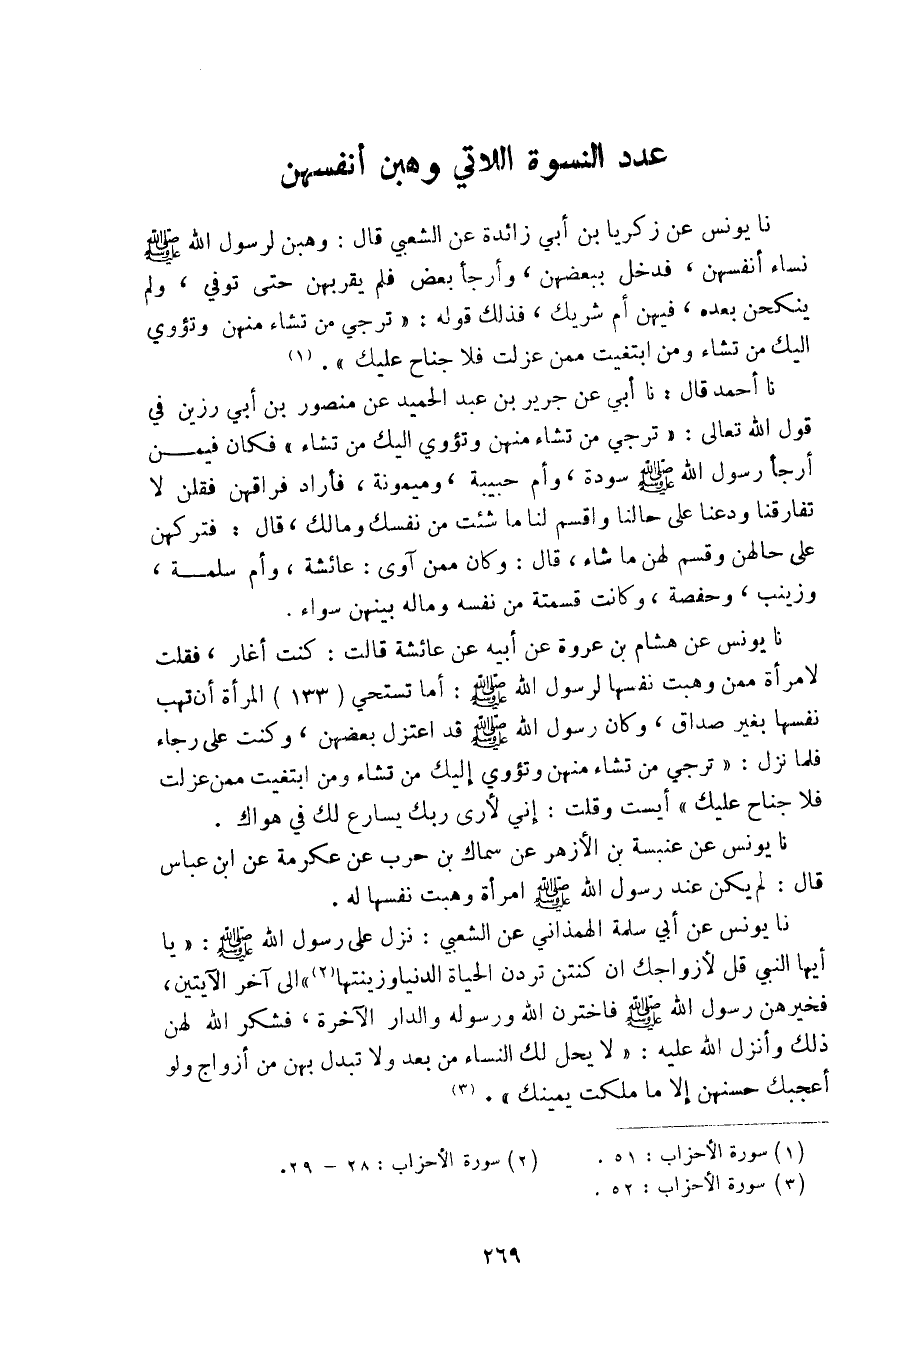 عدد النسوة اللاتي وهبن أنفسهن
نا يونس عن زكريا بن أبي زائدة عن الشعبي قال : وهبن لرسول الله ﷺ
نساء أنفسهن ، فدخل ببعضهن ، وأرجأ بعض فلم يقربهن حتى توفي ، ولم
ينكحن بعده ، فيهن أم شريك ، فذلك قوله : « ترجي من تشاء منهن وتؤوي
اليك من تشاء ومن ابتغيت ممن عزلت فلا جناح عليك » . (١)
نا أحمد قال : نا أبي عن جرير بن عبد الحميد عن منصور بن أبي رزين في
قول الله تعالى : « ترجي من تشاء منهن وتؤوي اليك من تشاء » فكان فيمـــن
أرجأ رسول الله ﷺ سودة ، وأم حبيبة ، وميمونة ، فأراد فراقهن فقلن لا
تفارقنا ودعنا على حالنا واقسم لنا ما شئت من نفسك ومالك ، قال : فتركهن
على حالهن وقسم لهن ما شاء ، قال : وكان ممن آوى : عائشة ، وأم سلمـــة ،
وزينب ، وحفصة ، وكانت قسمتة من نفسه وماله بينهن سواء .
نا يونس عن هشام بن عروة عن أبيه عن عائشة قالت : كنت أغار ، فقلت
لامرأة ممن وهبت نفسها لرسول الله ﷺ : أما تستحي ( ١٣٣ ) المرأة أن تهب
نفسها بغير صداق ، وكان رسول الله ﷺ قد اعتزل بعضهن ، وكنت على رجاء
فلما نزل : « ترجي من تشاء منهن وتؤوي إليك من تشاء ومن ابتغيت ممن عزلت
فلا جناح عليك » أيست وقلت : إني لأرى ربك يسارع لك في هواك .
نا يونس عن عنبسة بن الأزهر عن سماك بن حرب عن عكرمة عن ابن عباس
قال : لم يكن عند رسول الله ﷺ امرأة وهبت نفسها له .
نا يونس عن أبي سلمة الهمذاني عن الشعبي : نزل على رسول الله ﷺ : « يا
أيها النبي قل لأزواجك ان كنتن تردن الحياة الدنيا وزينتها(٢)» الى آخر الآيتين ،
فخيرهن رسول الله ﷺ فاخترن الله ورسوله والدار الآخرة ، فشكر الله لهن
ذلك وأنزل الله عليه : « لا يحل لك النساء من بعد ولا تبدل بهن من أزواج ولو
أعجبك حسنهن إلا ما ملكت يمينك » . (٣)
(١) سورة الأحزاب : ٥١ . (٢) سورة الأحزاب : ٢٨ – ٢٩.
(٣) سورة الأحزاب : ٥٢ .
٢٦٩